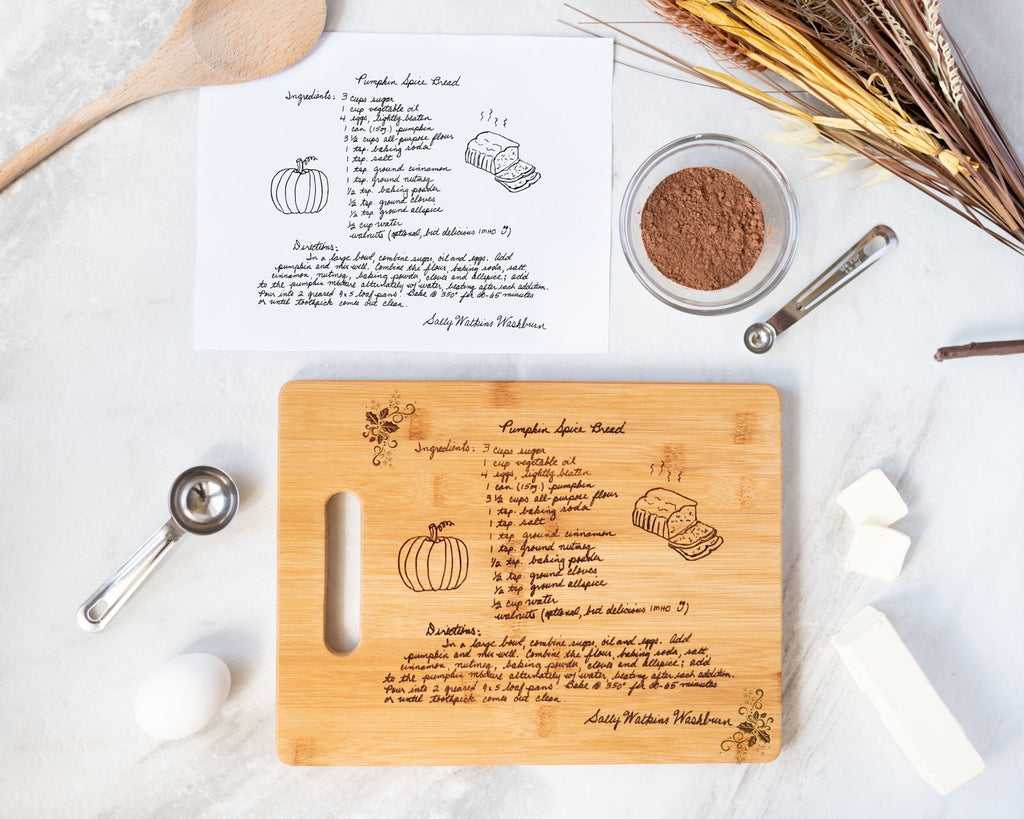 Pumpkin Spice Bread
Ingredients: 3 cups sugar
1 cup vegetable oil
4 eggs, lightly beaten
1 can (15oz.) pumpkin
3 ½ cups all-purpose flour
1 tsp. baking soda
1 tsp. salt
1 tsp. ground cinnamon
1 tsp. ground nutmeg
½ tsp. baking powder
½ tsp. ground cloves
½ tsp. ground allspice
½ cup water
walnuts (optional, but delicious IMHO)
Directions:
In a large bowl, combine sugar, oil and eggs. Add
pumpkin and mix well. Combine the flour, baking soda, salt,
cinnamon, nutmeg, baking powder, cloves and allspice; add
to the pumpkin mixture alternately w/ water, beating after each addition.
Pour into 2 greased 9x5 loaf pans. Bake @ 350° for 60-65 minutes
or until toothpick comes out clean.
Sally Watkins Washburn
Pumpkin Spice Bread
Ingredients: 3 cups sugar
1 cup vegetable oil
4 eggs, lightly beaten
1 can (15oz.) pumpkin
3 ½ cups all-purpose flour
1 tsp. baking soda
1 tsp. salt
1 tsp. ground cinnamon
1 tsp. ground nutmeg
½ tsp. baking powder
½ tsp. ground cloves
½ tsp. ground allspice
½ cup water
walnuts (optional, but delicious IMHO)
Directions:
In a large bowl, combine sugar, oil and eggs. Add
pumpkin and mix well. Combine the flour, baking soda, salt,
cinnamon, nutmeg, baking powder, cloves and allspice; add
to the pumpkin mixture alternately w/ water, beating after each addition.
Pour into 2 greased 9x5 loaf pans. Bake @ 350° for 60-65 minutes
or until toothpick comes out clean.
Sally Watkins Washburn